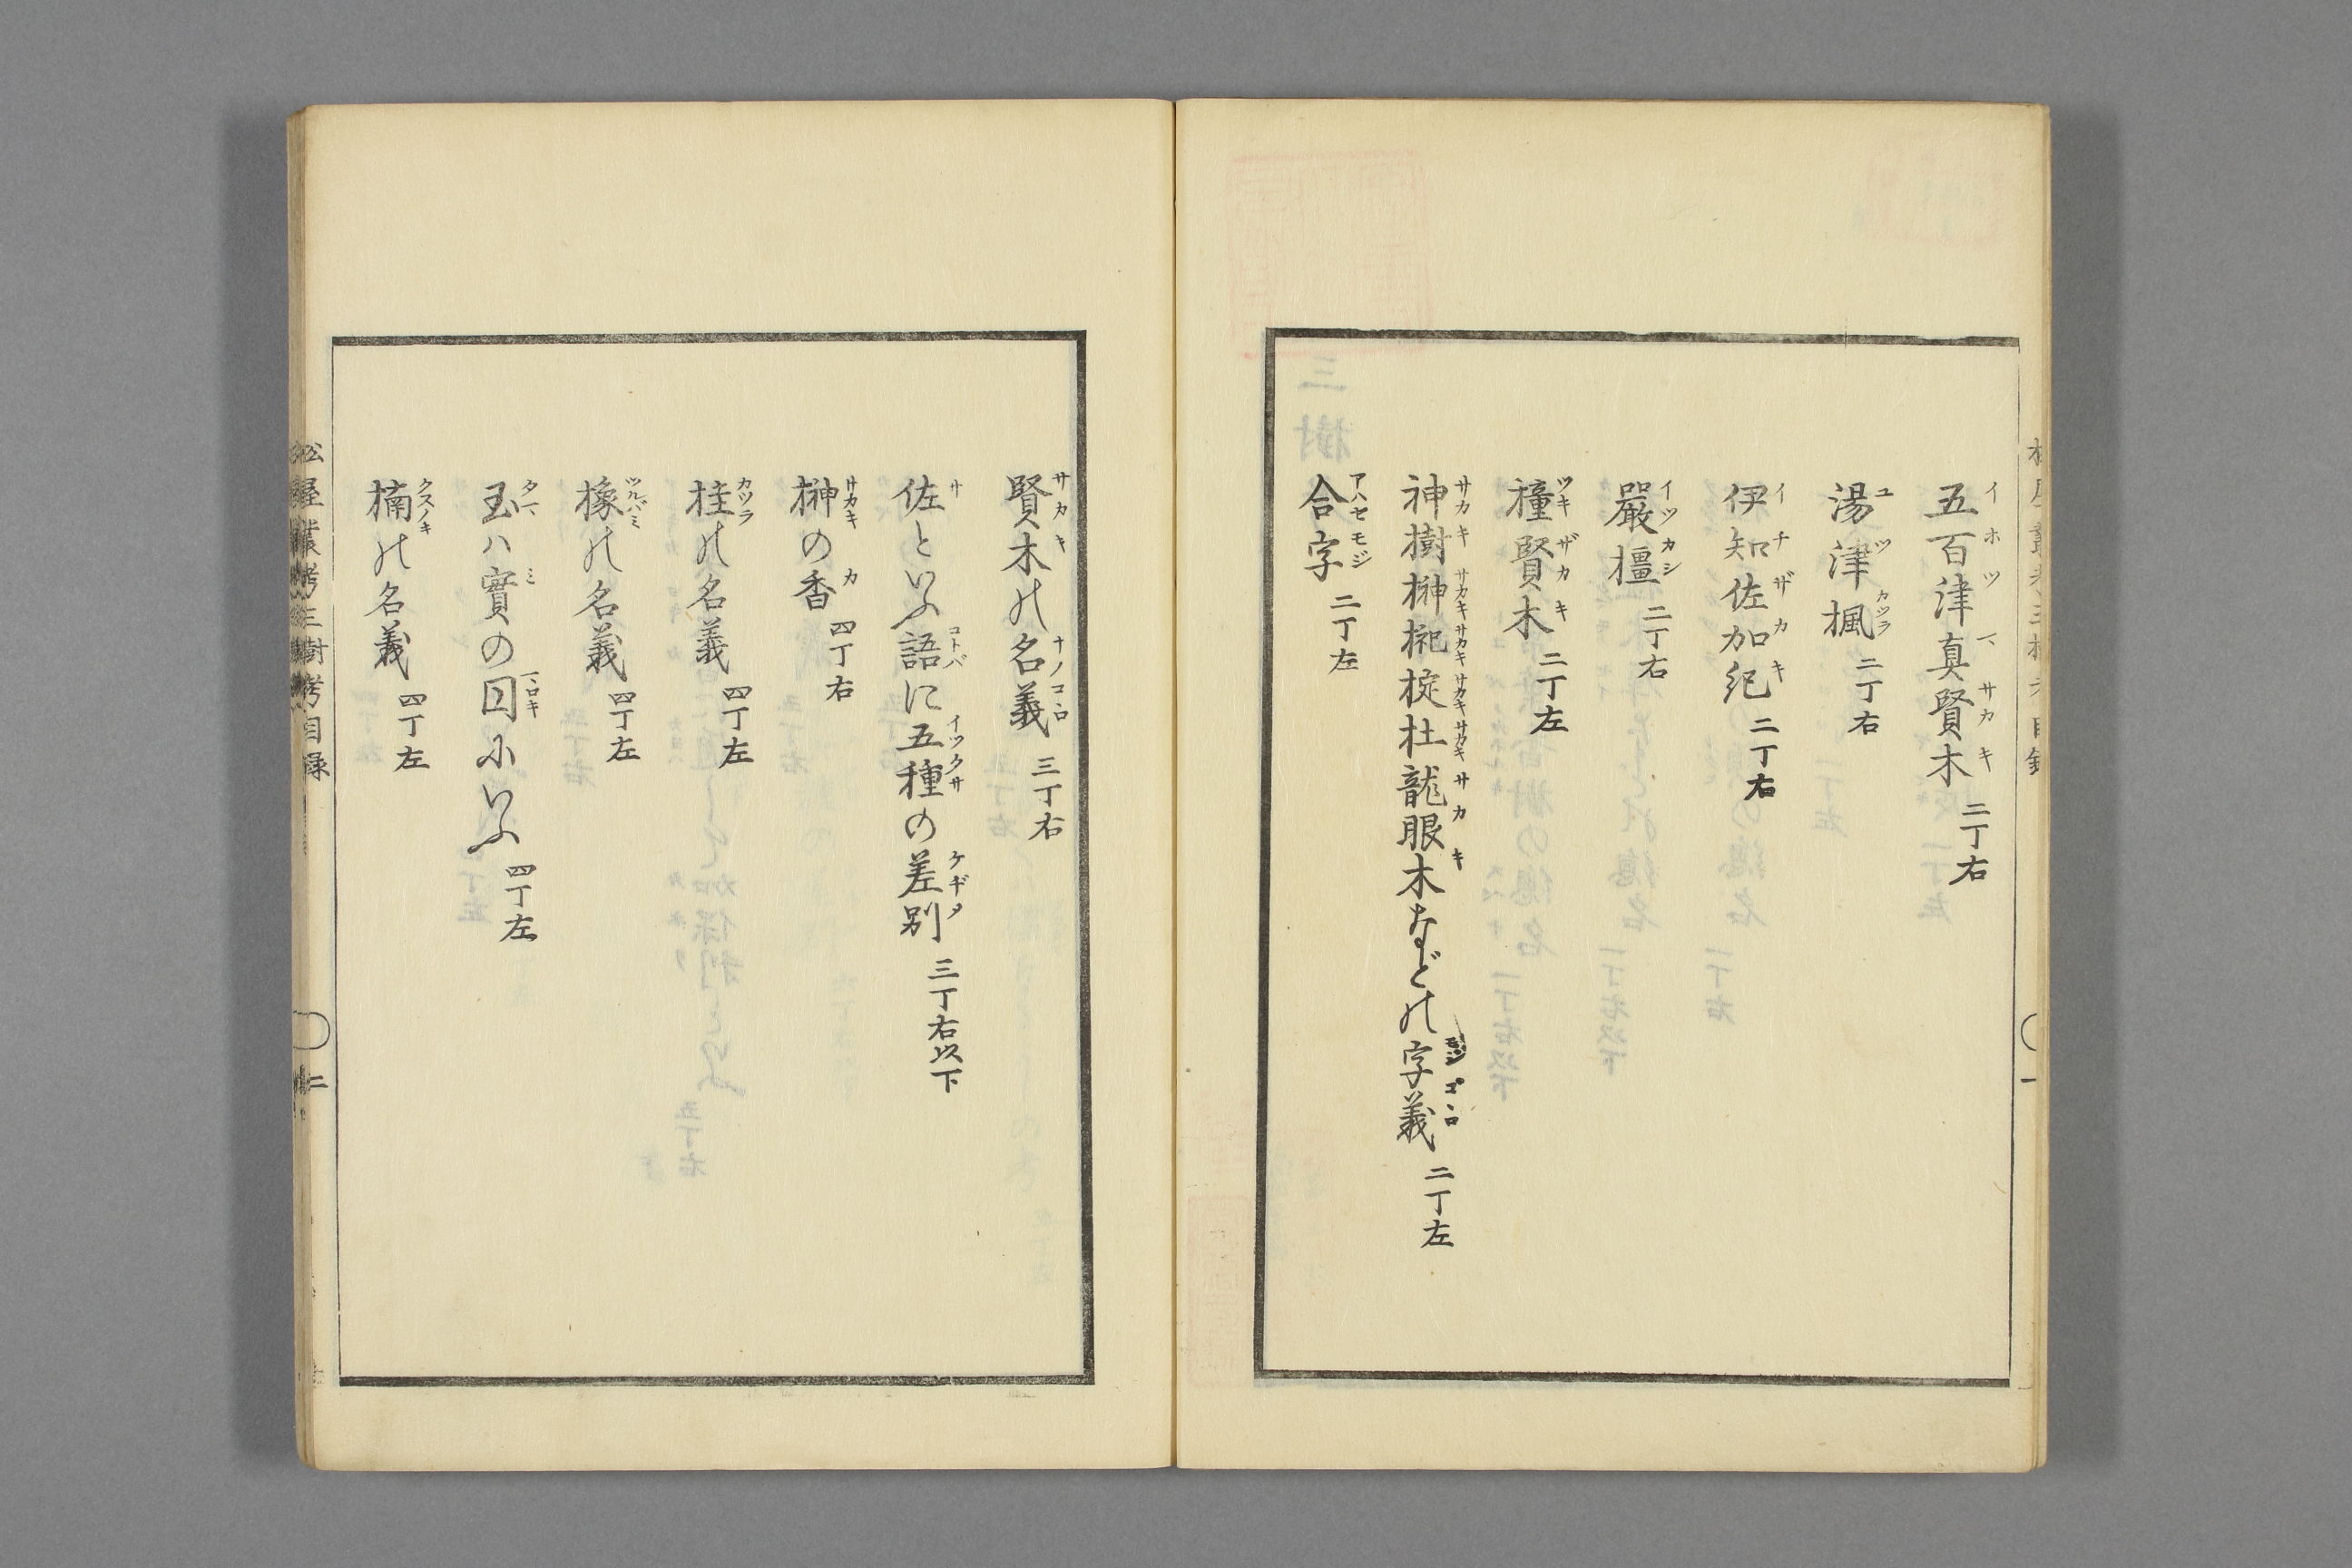 五百津真賢木 二丁右
湯津楓 二丁右
伊知佐加紀 二丁右
嚴橿 二丁右
橦賢木 二丁左
神樹榊杜龍眼木などの字義 二丁左
合字 二丁左
賢木の名義 三丁右
佐といふ語に五種の差別 三丁右以下
榊の香 四丁右
桂の名義 四丁左
橡の名義 四丁左
玉ハ實の円にいふ 四丁左
楠の名義 四丁左
松屋叢考三樹考目録 二